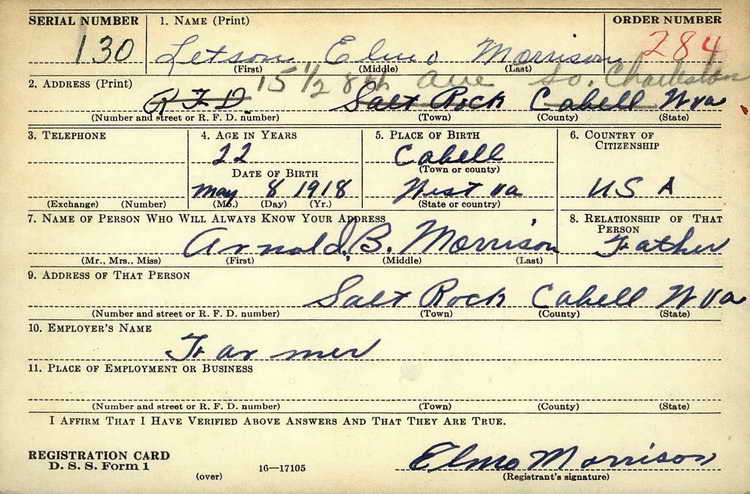 SERIAL NUMBER 1. NAME (Print) ORDER NUMBER
130 Letson Elmo Morrison 284
(First) (Middle) (Last)
15 1/2 8th Ave So. Charleston
2. ADDRESS (Print)
R.F.D. Salt Rock Cabell W va
(Number and street or R. F. D. number) (Town) (County) (State)
3. TELEPHONE 4. AGE IN YEARS 5. PLACE OF BIRTH 6. COUNTRY OF CITIZENSHIP
22 Cabell
(Town or county)
DATE OF BIRTH
May 8 1918 West va USA
(Exchange) (Number) (Mo.) (Day) (Yr.) (State or country)
7. NAME OF PERSON WHO WILL ALWAYS KNOW YOUR ADDRESS 8. RELATIONSHIP OF THAT PERSON
Arnold B. Morrison Father
(Mr., Mrs., Miss) (First) (Middle) (Last)
9. ADDRESS OF THAT PERSON
Salt Rock Cabell W va
(Number and street or R. F. D. number) (Town) (County) (State)
10. EMPLOYER'S NAME
Farmer
11. PLACE OF EMPLOYMENT OR BUSINESS
(Number and street or R. F. D. number) (Town) (County) (State)
I AFFIRM THAT I HAVE VERIFIED ABOVE ANSWERS AND THAT THEY ARE TRUE.
REGISTRATION CARD
D. S. S. Form 1 (over) 16—17105 Elmo Morrison
(Registrant's signature)